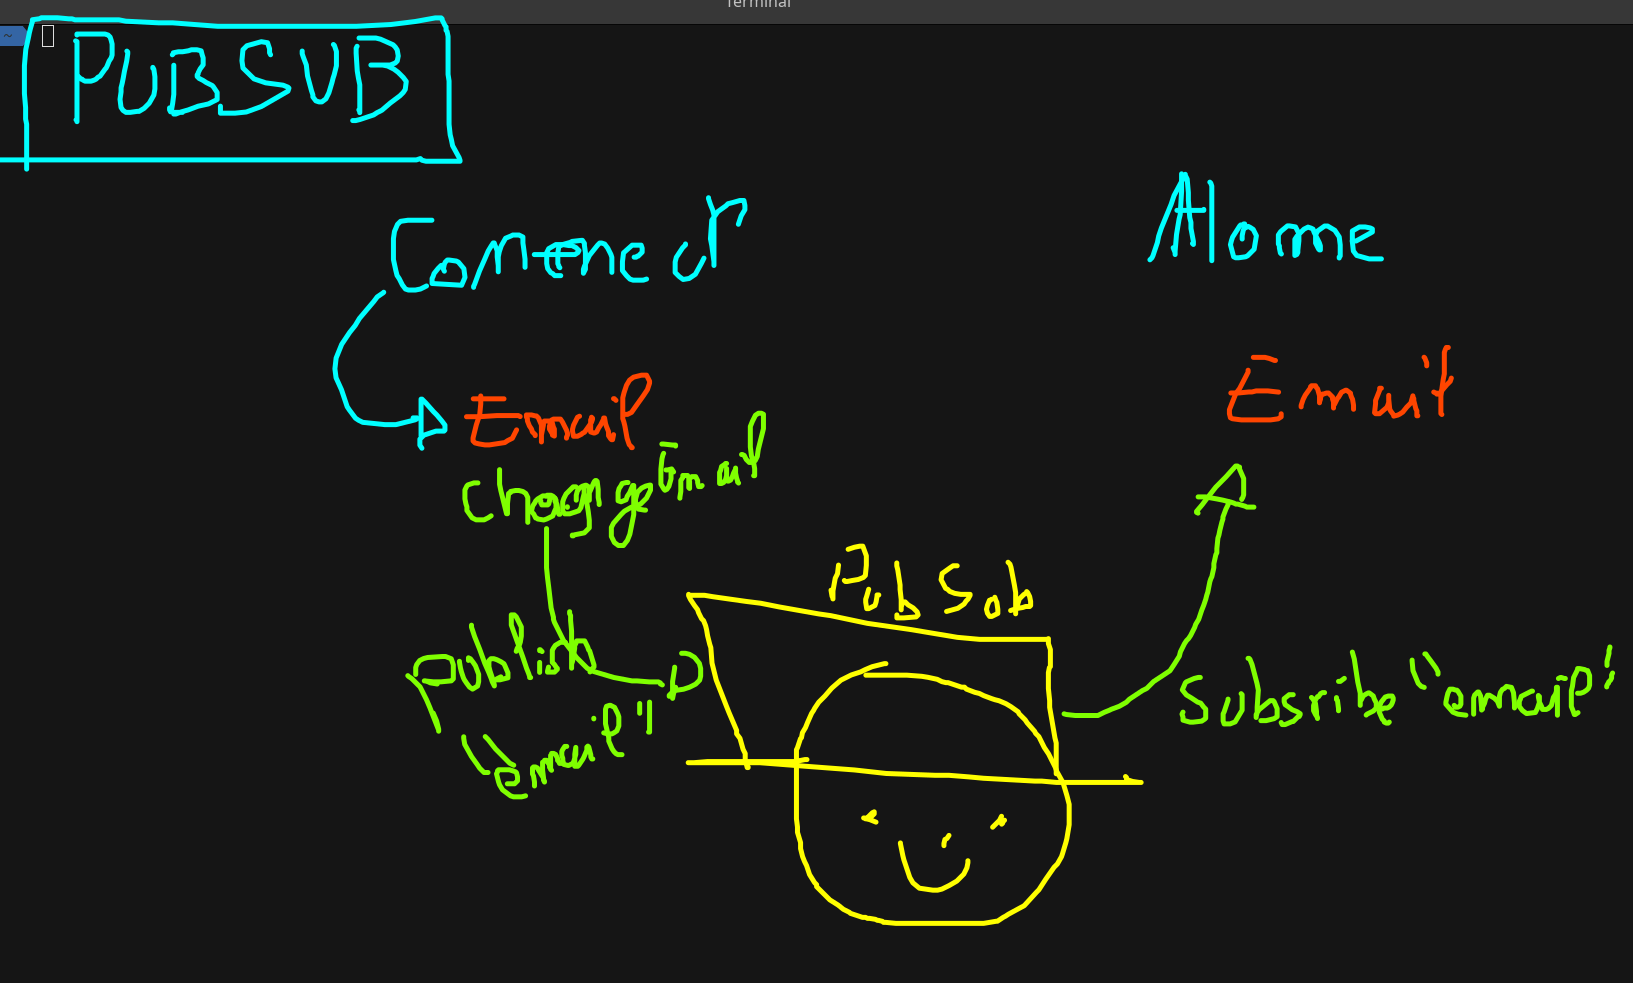 Terminal
~
PUBSUB
Alome
Email
Email
Change Email
PubSub
Publish
"email"
Subsribe "email"